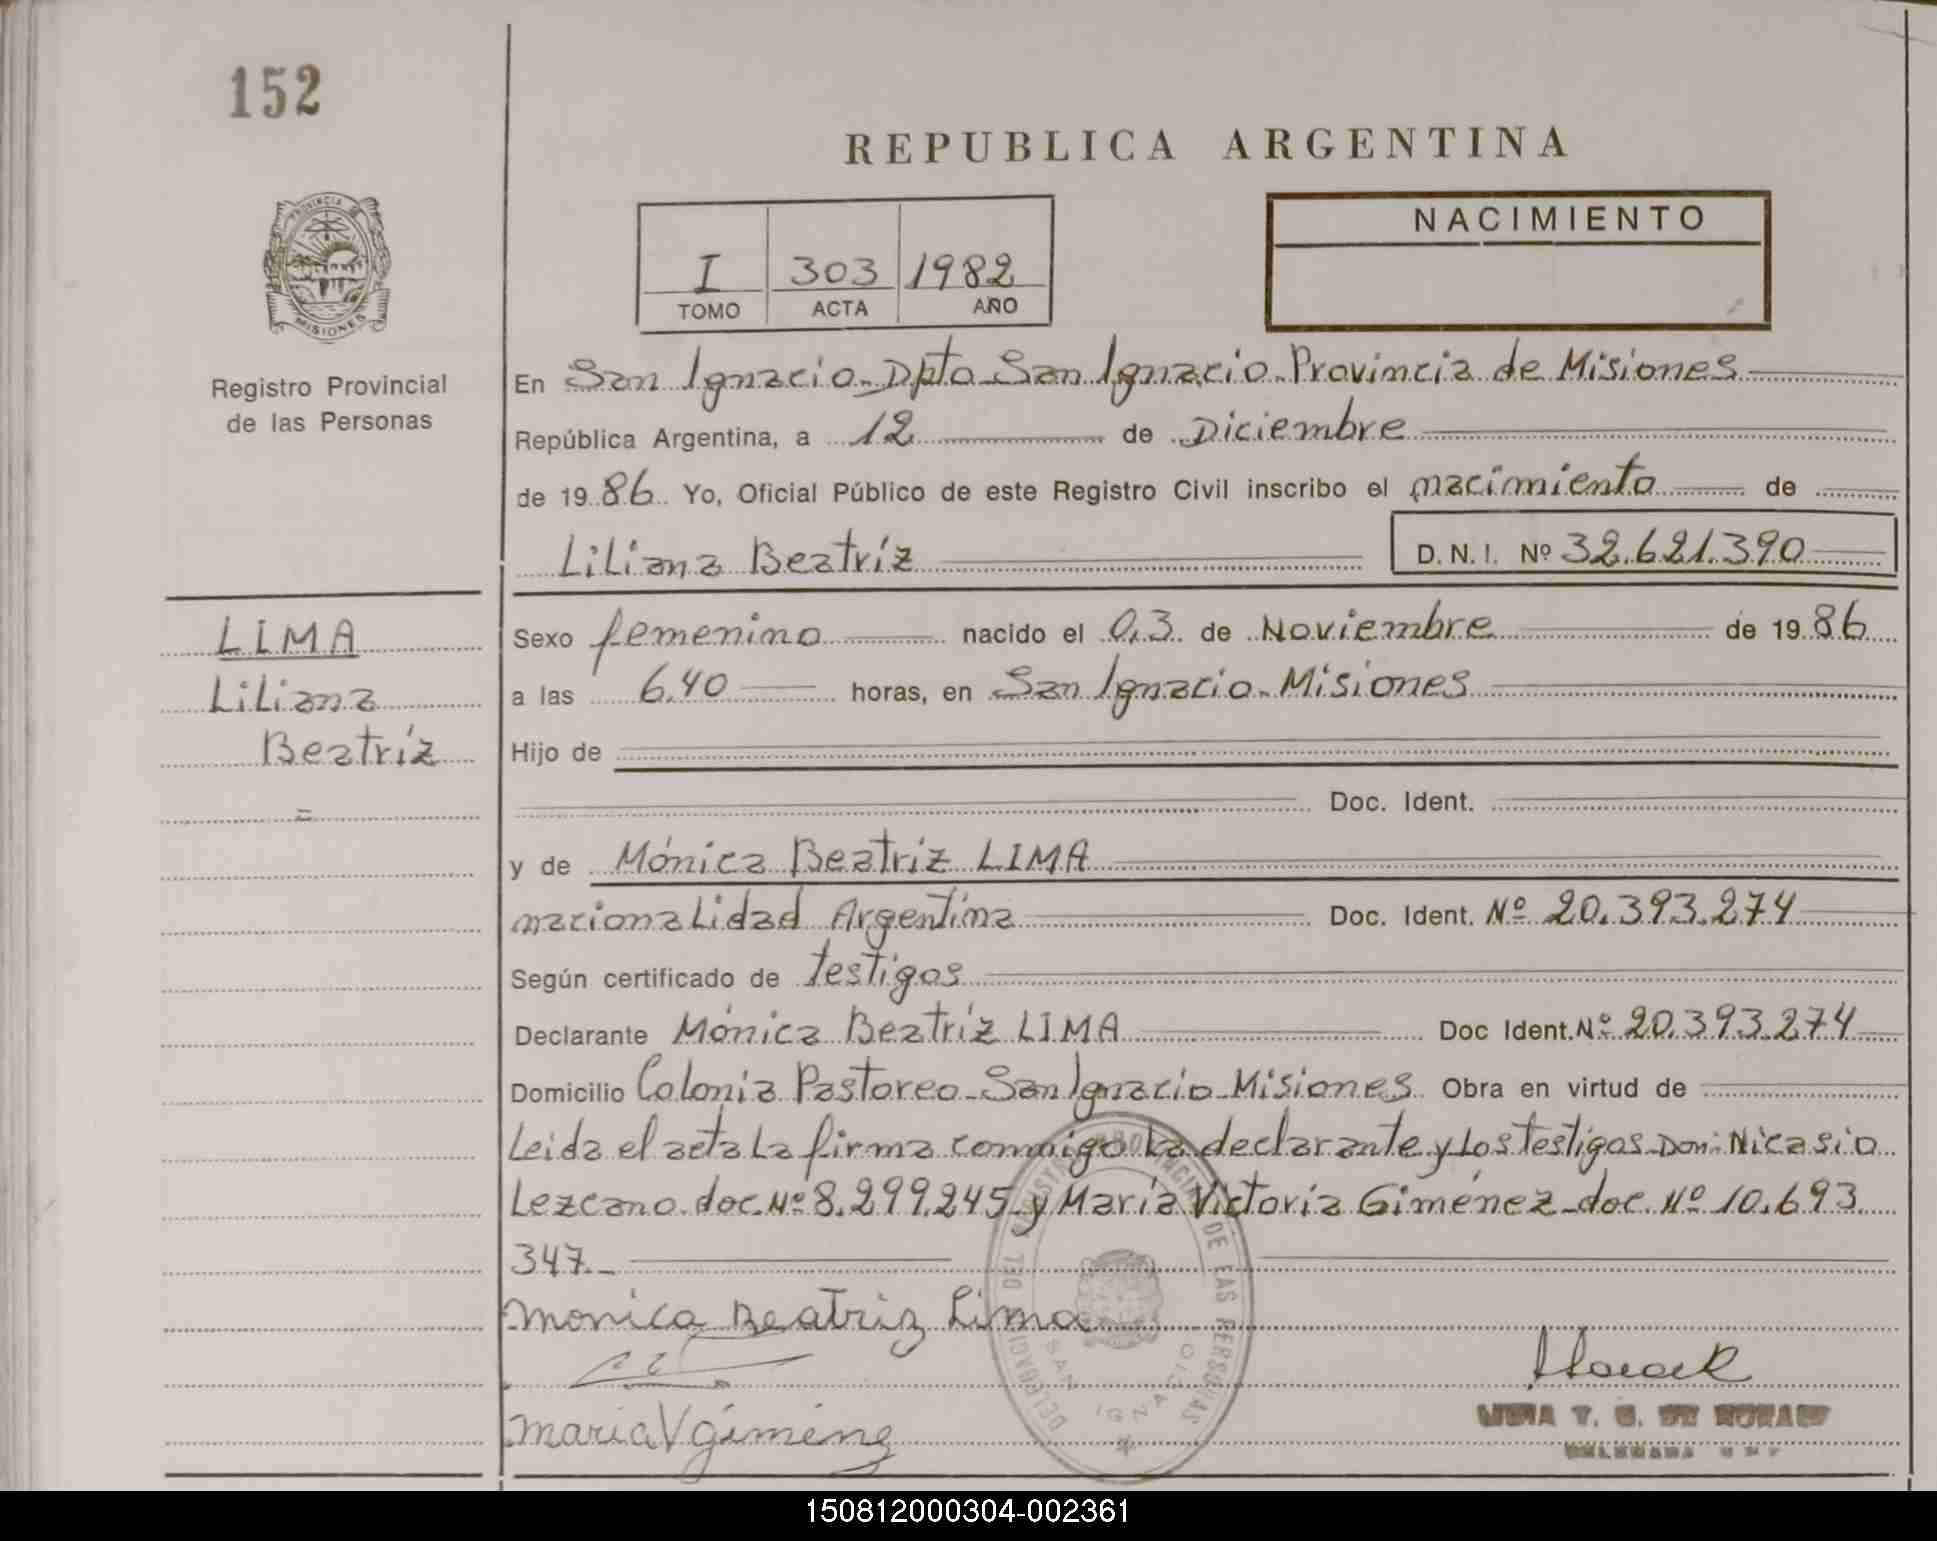 152
REPUBLICA ARGENTINA
PROVINCIA DE
MISIONES
Registro Provincial
de las Personas
I 303 1982
TOMO ACTA AÑO
NACIMIENTO
En San Ignacio - Dpto San Ignacio - Provincia de Misiones
República Argentina, a 12 de Diciembre
de 1986 Yo, Oficial Público de este Registro Civil inscribo el nacimiento de
Liliana Beatríz D.N.I. Nº 32.621.390
LIMA
Liliana
Beatríz
=
Sexo femenino nacido el 03 de Noviembre de 1986
a las 6.40 horas, en San Ignacio - Misiones
Hijo de
Doc. Ident.
y de Mónica Beatríz LIMA
nacionalidad Argentina Doc. Ident. Nº 20.393.274
Según certificado de testigos
Declarante Mónica Beatríz LIMA Doc Ident. Nº 20.393.274
Domicilio Colonia Pastoreo - San Ignacio - Misiones Obra en virtud de
Leida el acta La firma conmigo La declarante y Los testigos Don: Nicasio
Lezcano doc. Nº 8.299.245 y María Victoria Giménez - doc. Nº 10.693
347.-
Monica Beatriz Lima
Maria V gimenez
DE LAS PERSONAS
SAN IGNACIO
150812000304-002361